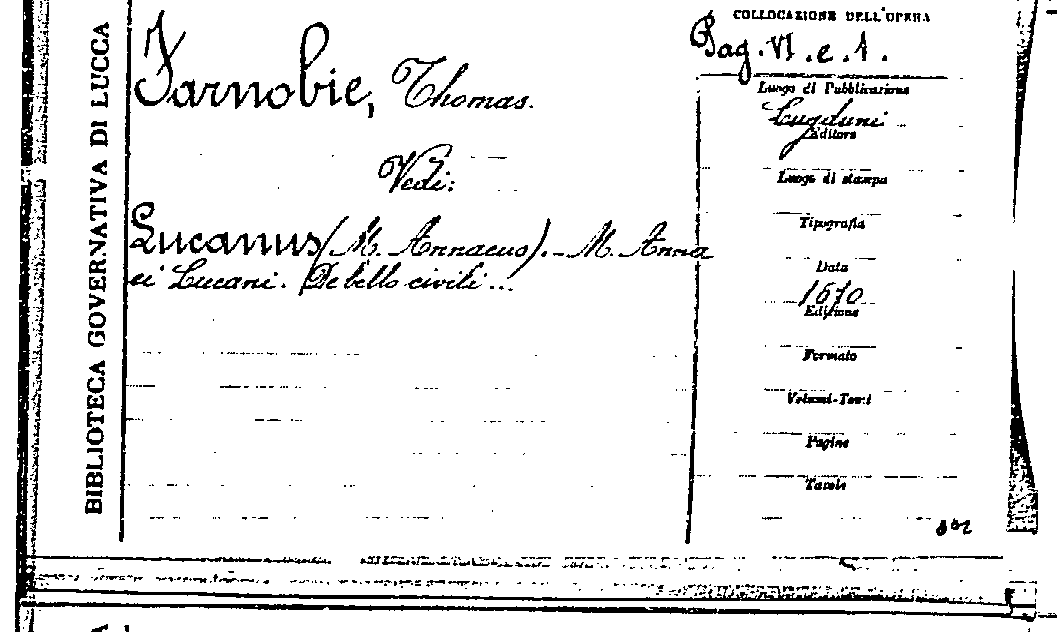 BIBLIOTECA GOVERNATIVA DI LUCCA
Farnobie, Thomas.
Vedi:
Lucanus (M. Annaeus). - M. Anna
ei Lucani. De bello civili ...
COLLOCAZIONE DELL'OPERA
Pag. VI. e. 1.
Luogo di Pubblicazione
Lugduni
Editore
Luogo di stampa
Tipografia
Data
1670
Edizione
Formato
Volumi-Tomi
Pagine
Tavole